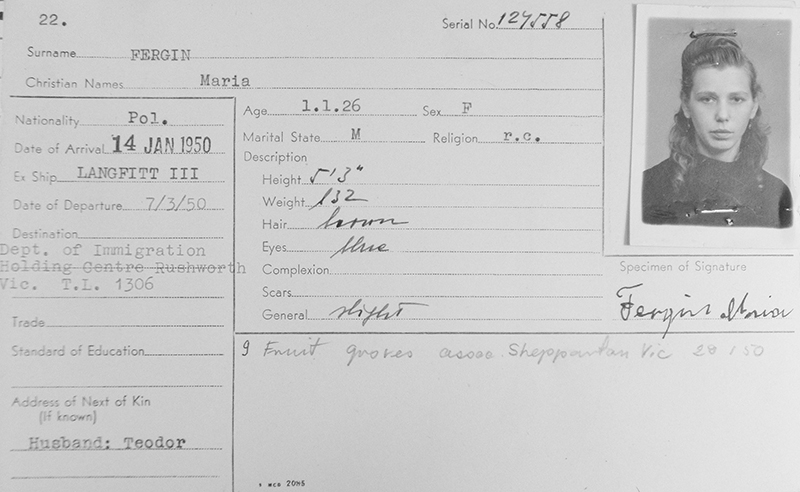 22.
Serial No. 127558
Surname FERGIN
Christian Names Maria
Nationality Pol.
Date of Arrival 14 JAN 1950
Ex Ship LANGFITT III
Date of Departure 7/3/50
Destination
Dept. of Immigration
Holding Centre Rushworth
Vic. T.L. 1306
Trade
Standard of Education
Address of Next of Kin
(If known)
Husband: Teodor
Age 1.1.26 Sex F
Marital State M Religion r.c.
Description
Height 5'3"
Weight 132
Hair brown
Eyes blue
Complexion
Scars
General slight
Specimen of Signature
Fergin Maria
9 Fruit groves assoc. Shepparton Vic
MCD 20815